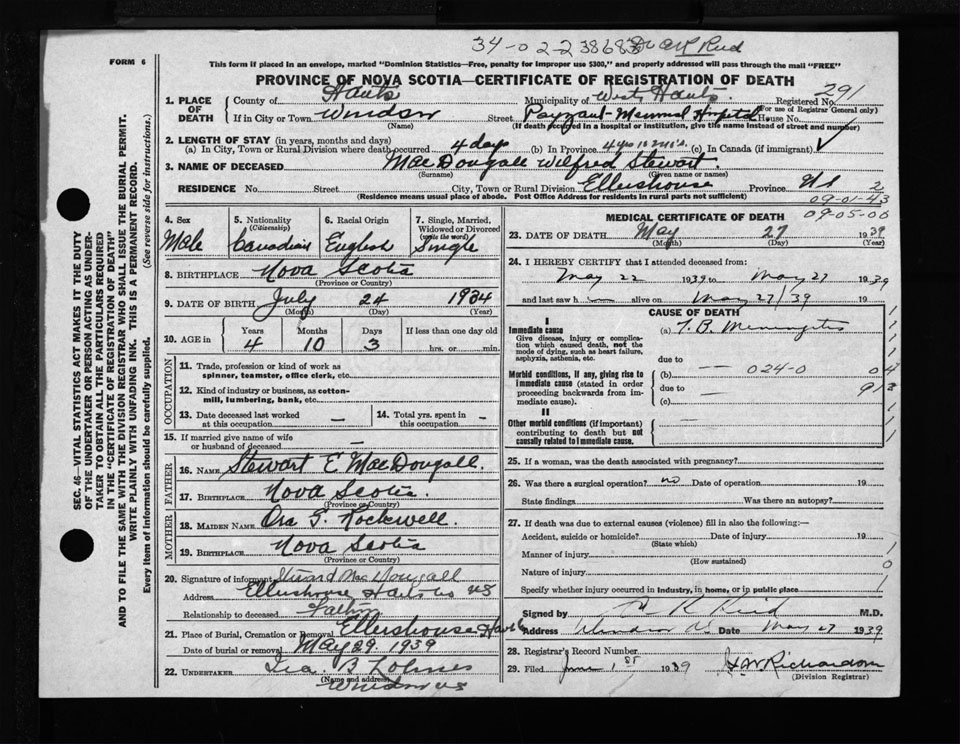 34-02-238683 Dr A K Reid
FORM 6
This form if placed in an envelope, marked "Dominion Statistics—Free, penalty for improper use $300," and properly addressed will pass through the mail "FREE"
PROVINCE OF NOVA SCOTIA—CERTIFICATE OF REGISTRATION OF DEATH
1. PLACE OF DEATH County of Hants Municipality of West Hants Registered No. 291
(For use of Registrar General only)
If in City or Town Windsor Street Payzant Memorial Hospital House No.
(Name) (If death occurred in a hospital or institution, give the name instead of street and number)
2. LENGTH OF STAY (in years, months and days)
(a) In City, Town or Rural Division where death occurred 4 days (b) In Province 4 yrs 10 mo's (c) In Canada (if immigrant)
3. NAME OF DECEASED MacDougall Wilfred Stewart
(Surname) (Given name or names)
RESIDENCE No. Street City, Town or Rural Division Ellershouse Province NS 2
(Residence means usual place of abode. Post Office Address for residents in rural parts not sufficient)
09-01-43
09-05-00
4. Sex Male
5. Nationality (Citizenship) Canadian
6. Racial Origin English
7. Single, Married, Widowed or Divorced (write the word) Single
8. BIRTHPLACE Nova Scotia
(Province or Country)
9. DATE OF BIRTH July 24 1934
(Month) (Day) (Year)
10. AGE in Years Months Days If less than one day old
4 10 3 hrs. or min.
OCCUPATION
11. Trade, profession or kind of work as spinner, teamster, office clerk, etc.
12. Kind of industry or business, as cotton-mill, lumbering, bank, etc.
13. Date deceased last worked at this occupation —
14. Total yrs. spent in this occupation —
15. If married give name of wife or husband of deceased —
FATHER
16. NAME Stewart E. MacDougall.
17. BIRTHPLACE Nova Scotia.
(Province or Country)
MOTHER
18. MAIDEN NAME Ora G. Rockwell.
19. BIRTHPLACE Nova Scotia
(Province or Country)
20. Signature of informant Stuard MacDougall
Address Ellershouse Hants Co NS
Relationship to deceased Father
21. Place of Burial, Cremation or Removal Ellershouse Hants
Date of burial or removal May 29. 1939
22. UNDERTAKER Ira B Lohnes
(Name and address)
Windsor NS
MEDICAL CERTIFICATE OF DEATH
23. DATE OF DEATH May 27 1939
(Month) (Day) (Year)
24. I HEREBY CERTIFY that I attended deceased from:
May 22 1939 to May 27 1939
and last saw h alive on May 27/39 19
CAUSE OF DEATH
I
Immediate cause
Give disease, injury or complication which caused death, not the mode of dying, such as heart failure, asphyxia, asthenia, etc.
(a) T. B. Meningitis
due to
Morbid conditions, if any, giving rise to immediate cause (stated in order proceeding backwards from immediate cause).
(b) — 024-0 04
due to — 913
(c) —
II
Other morbid conditions (if important) contributing to death but not causally related to immediate cause.
25. If a woman, was the death associated with pregnancy?
26. Was there a surgical operation? no Date of operation 19
State findings Was there an autopsy?
27. If death was due to external causes (violence) fill in also the following:—
Accident, suicide or homicide? Date of injury 19
(State which)
Manner of injury
(How sustained)
Nature of injury
Specify whether injury occurred in industry, in home, or in public place
Signed by A K Reid M.D.
Address Windsor NS Date May 27 1939
28. Registrar's Record Number
29. Filed June 1st 1939 H W Richardson
(Division Registrar)
SEC. 46—VITAL STATISTICS ACT MAKES IT THE DUTY
OF THE UNDERTAKER OR PERSON ACTING AS UNDER-
TAKER TO OBTAIN ALL THE PARTICULARS REQUIRED
IN THE "CERTIFICATE OF REGISTRATION OF DEATH"
AND TO FILE THE SAME WITH THE DIVISION REGISTRAR WHO SHALL ISSUE THE BURIAL PERMIT.
WRITE PLAINLY WITH UNFADING INK. THIS IS A PERMANENT RECORD.
Every item of information should be carefully supplied. (See reverse side for instructions.)